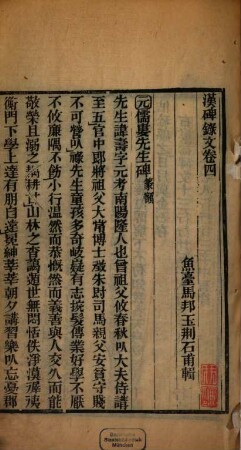 漢碑錄文卷四
魚臺馬邦玉荊石甫輯
元儒婁先生碑篆額
先生諱壽字元考南陽隆人也曾祖父攸春秋㠯大夫侍講
至五官中郎將祖父大常博士徵朱尉司馬親父安貧守賤
不可營㠯祿先生童孩多奇岐嶷有志捥髮傳業好學不厭
不攸廉隅不飭小行溫然而恭慨然而義善與人交久而能
敬榮且溺之耦耕甘山林之杳藹遁世無悶恬佚淨漠徲㣪
衡門下學上達有朋自遠冕紳莘莘朝夕講習樂㠯忘憂郡
Bayerische
Staatsbibliothek
München